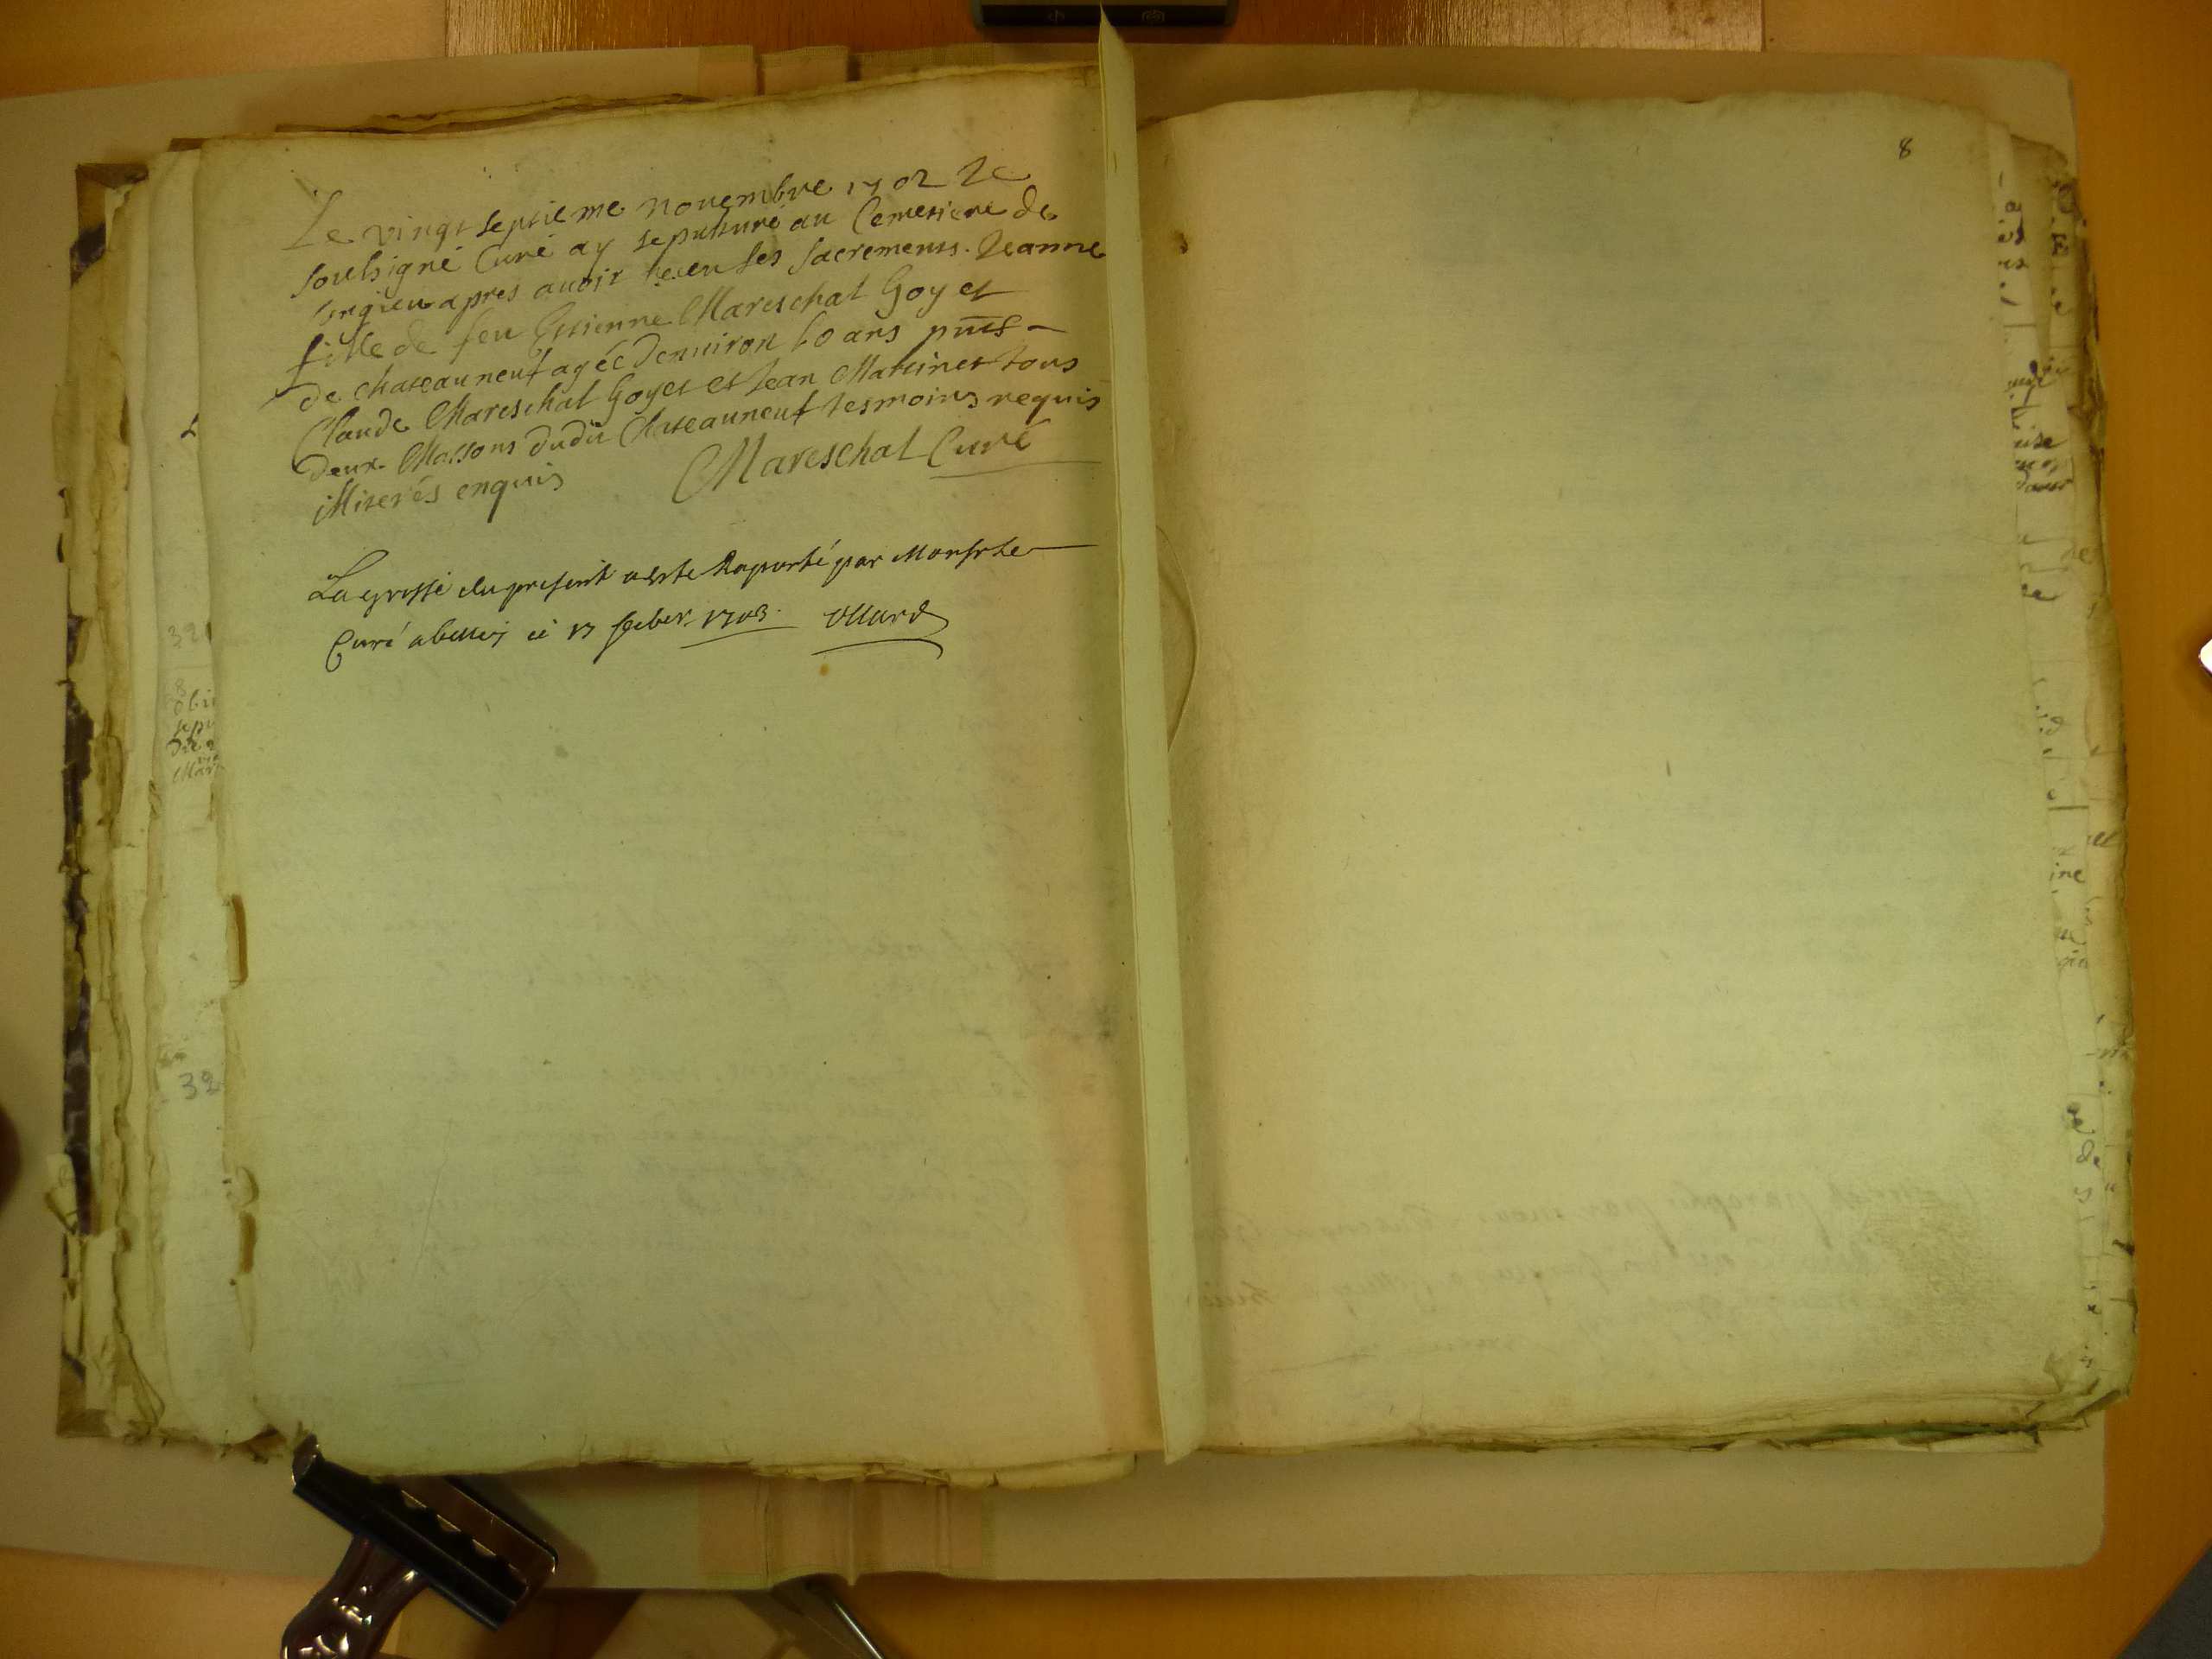 Le vingt septieme novembre 1702 Je
soubsigné Curé ay sepulturé au Cemetiere de
Songieu apres avoir receu ses sacrements. Jeanne
fille de feu Estienne Mareschal Goyet
de chateauneuf agée denuiron 60 ans pnts
Claude Mareschal Goyet et Jean Martinet tous
deux Massons dudit Chateauneuf tesmoins requis
illiterés enquis Mareschal Curé
La grosse du present a este Raporté par Monsr le
Curé a belley ce 17 1703
8
32